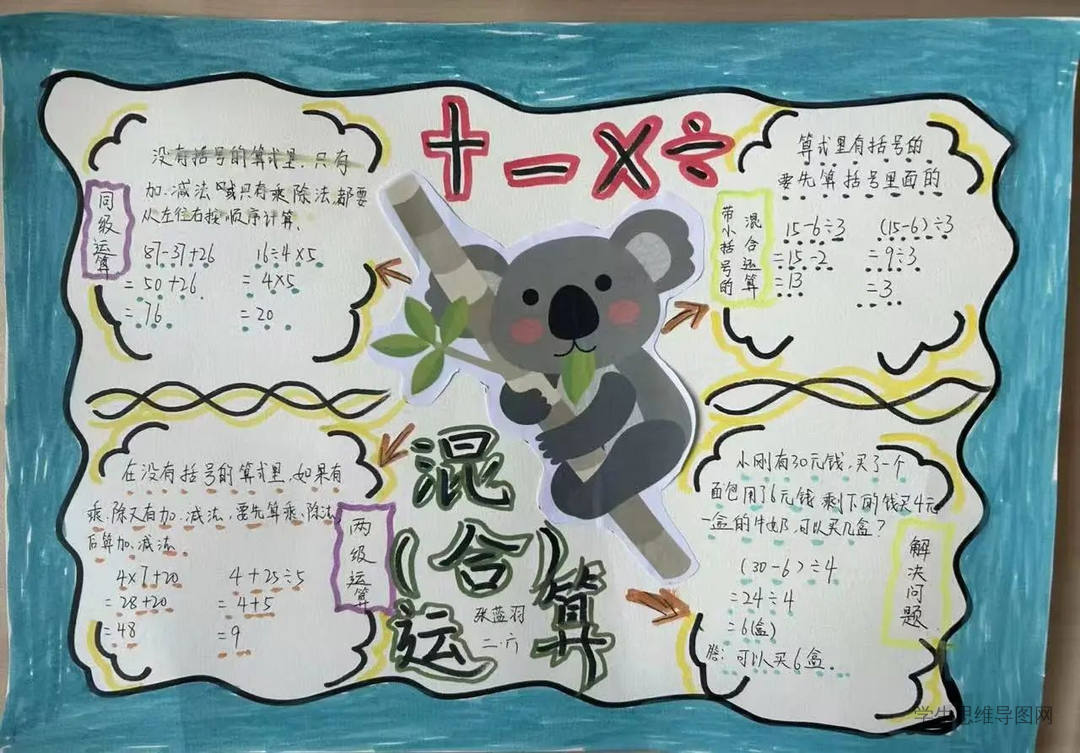 + - × ÷
没有括号的算式里,只有
加、减法或只有乘、除法,都要
从左往右按顺序计算。
同级运算
87-37+26
=50+26
=76
16÷4×5
=4×5
=20
算式里有括号的
要先算括号里面的
带小括号的
混合运算
15-6÷3
=15-2
=13
(15-6)÷3
=9÷3
=3
在没有括号的算式里,如果有
乘、除又有加、减法,要先算乘、除法,
后算加、减法。
两级运算
4×7+20
=28+20
=48
4+25÷5
=4+5
=9
混
(合)
运算
张蓝羽
二·六
小刚有30元钱,买了一个
面包用了6元钱 剩下的钱买4元
一盒的牛奶,可以买几盒?
解决问题
(30-6)÷4
=24÷4
=6(盒)
答:可以买6盒.
学生思维导图网